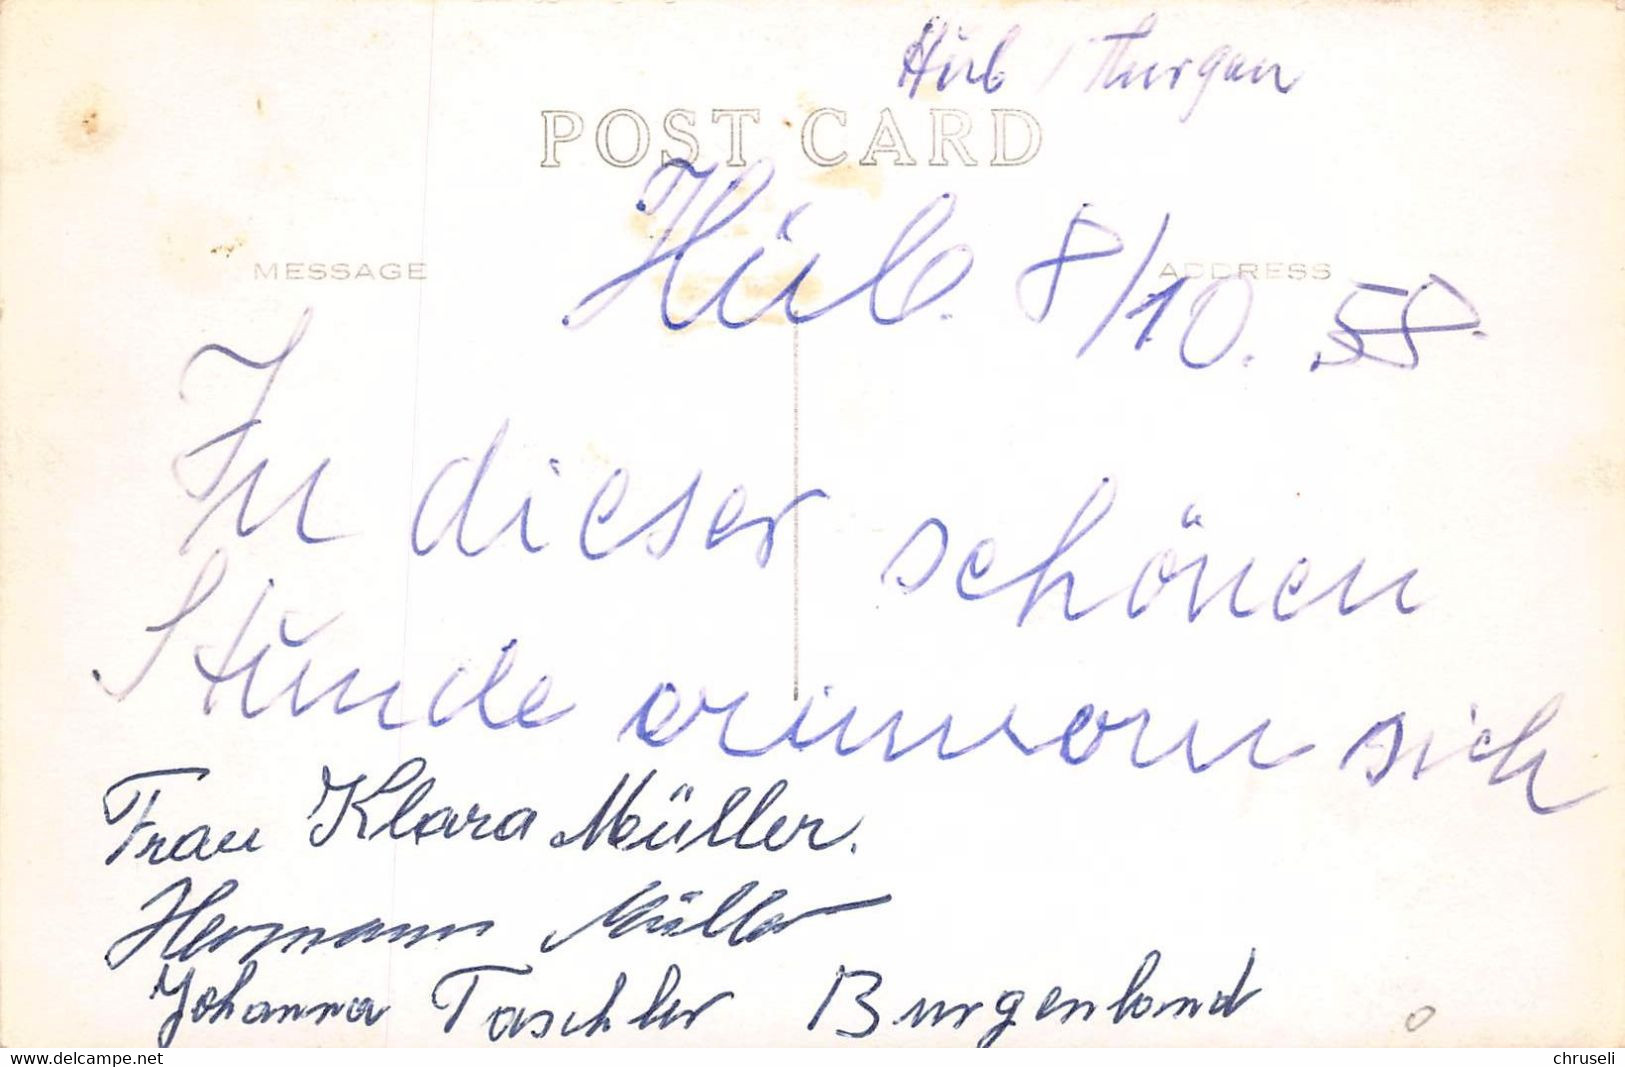 Hüb / Thurgau
POST CARD
Hüb. 8/10. 58.
MESSAGE
ADDRESS
In dieser schönen
Stunde erinnern sich
Frau Klara Müller.
Hermann Müller
Johanna Taschler Burgenland
www.delcampe.net
chruseli